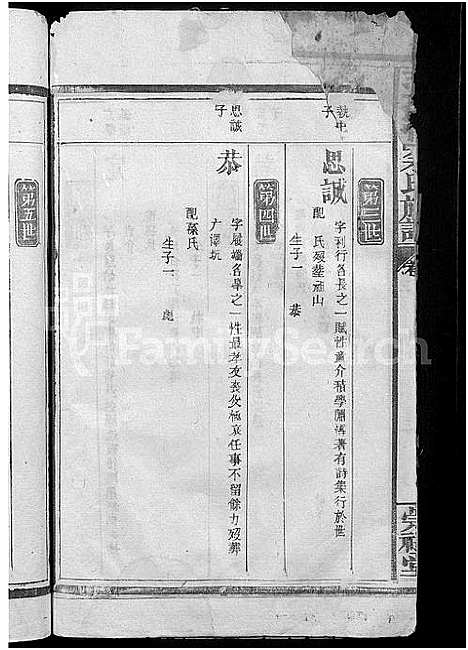 第三世
執中子
思誠
字刊行名長之一賦性廉介積學淵博著有詩集行於世
配 氏 歿葬 山
生子一 恭
第四世
思誠子
恭
字履端名學之一性最孝友喪父極哀任事不留餘力歿葬
广潭坑
配葉氏
生子一 彪
第五世
氏族譜
卷
FamilySearch